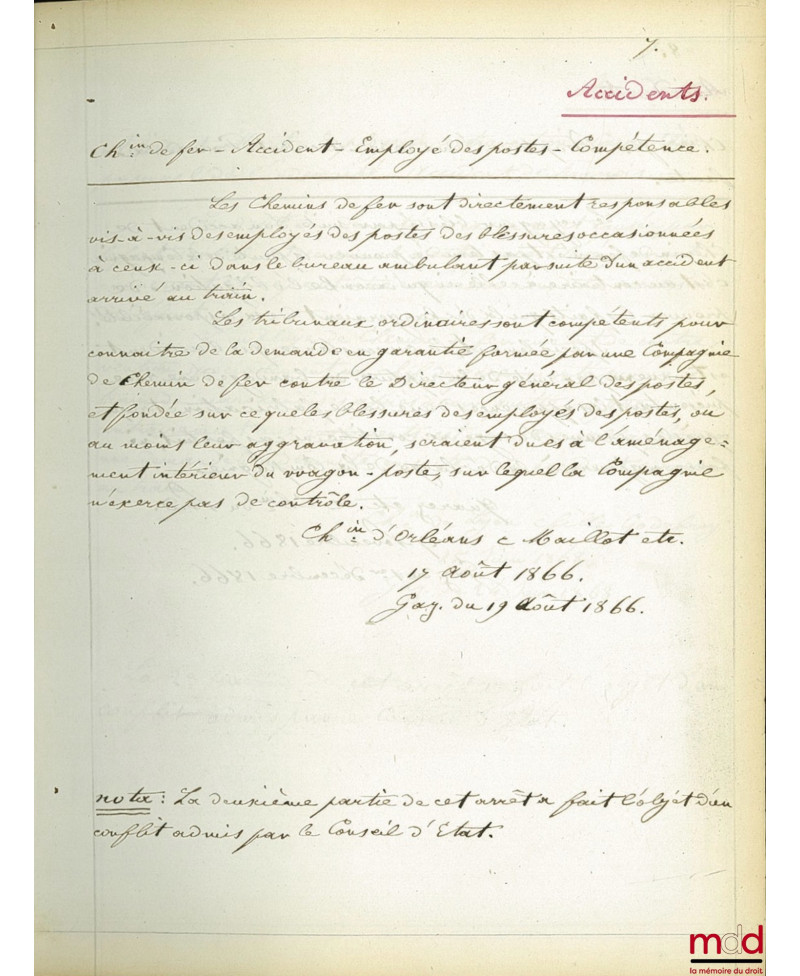 7.
Accidents.
Ch.in de fer - Accident - Employé des postes - Compétence.
Les Chemins de fer sont directement responsables
vis-à-vis des employés des postes des blessures occasionnées
à ceux-ci dans le bureau ambulant par suite d'un accident
arrivé au train.
Les tribunaux ordinaires sont compétents pour
connaitre de la demande en garantie formée par une Compagnie
de Chemin de fer contre le Directeur général des postes,
et fondée sur ce que les blessures des employés des postes, ou
au moins leur aggravation, seraient dues à l'aménage=
ment intérieur du wagon-poste, sur lequel la Compagnie
n'exerce pas de contrôle.
Ch.in d'Orléans c Maillot etc.
17 Août 1866.
Gaz. du 19 Août 1866.
nota : La deuxième partie de cet arrêt a fait l'objet d'un
conflit admis par le Conseil d'Etat.
mdd
la mémoire du droit